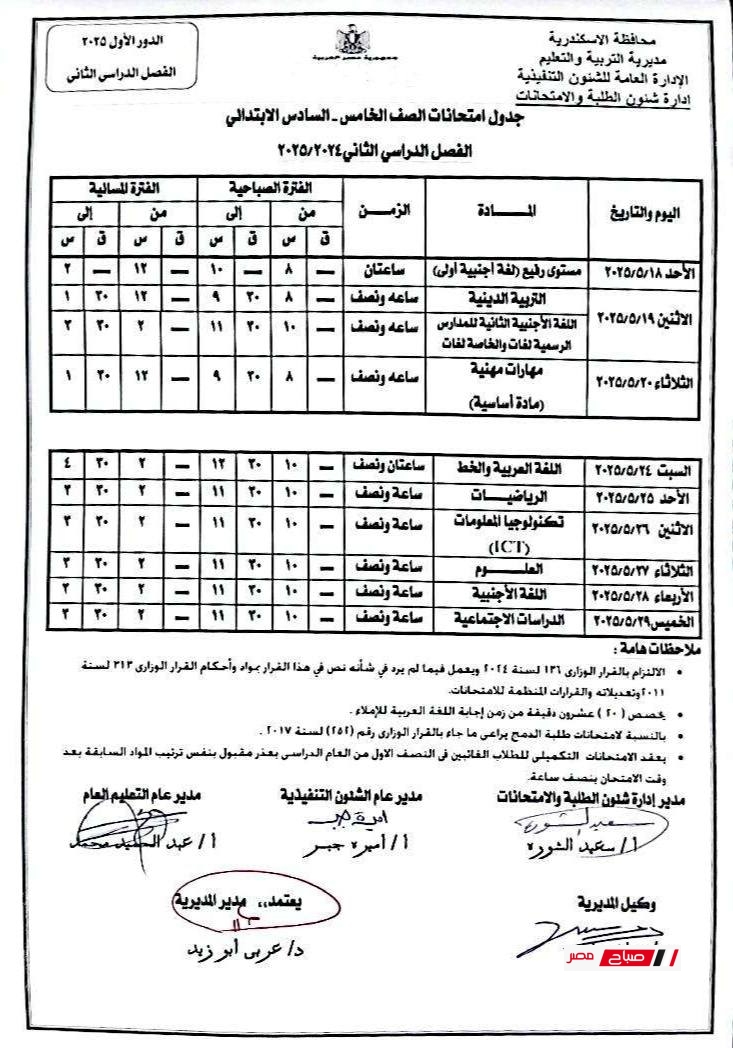 محافظة الاسكندرية
مديرية التربية والتعليم
الإدارة العامة للشئون التنفيذية
ادارة شئون الطلبة والامتحانات
جمهورية مصر العربية
الدور الأول ٢٠٢٥
الفصل الدراسي الثاني
جدول امتحانات الصف الخامس - السادس الابتدائي
الفصل الدراسي الثاني ٢٠٢٥/٢٠٢٤
اليوم والتاريخ المـــادة الزمـــن الفترة الصباحية الفترة المسائية
من إلى من إلى
ق س ق س ق س ق س
الأحد ٢٠٢٥/٥/١٨ مستوى رفيع (لغة أجنبية أولى) ساعتان — ٨ — ١٠ — ١٢ — ٢
الاثنين ٢٠٢٥/٥/١٩ التربية الدينية ساعه ونصف — ٨ ٣٠ ٩ — ١٢ ٣٠ ١
اللغة الأجنبية الثانية للمدارس الرسمية لغات والخاصة لغات ساعه ونصف — ١٠ ٣٠ ١١ — ٢ ٣٠ ٣
الثلاثاء ٢٠٢٥/٥/٢٠ مهارات مهنية (مادة أساسية) ساعه ونصف — ٨ ٣٠ ٩ — ١٢ ٣٠ ١
السبت ٢٠٢٥/٥/٢٤ اللغة العربية والخط ساعتان ونصف — ١٠ ٣٠ ١٢ — ٢ ٣٠ ٤
الأحد ٢٠٢٥/٥/٢٥ الرياضيـــات ساعة ونصف — ١٠ ٣٠ ١١ — ٢ ٣٠ ٣
الاثنين ٢٠٢٥/٥/٢٦ تكنولوجيا المعلومات (ICT) ساعة ونصف — ١٠ ٣٠ ١١ — ٢ ٣٠ ٣
الثلاثاء ٢٠٢٥/٥/٢٧ العلـــوم ساعة ونصف — ١٠ ٣٠ ١١ — ٢ ٣٠ ٣
الأربعاء ٢٠٢٥/٥/٢٨ اللغة الأجنبية ساعة ونصف — ١٠ ٣٠ ١١ — ٢ ٣٠ ٣
الخميس ٢٠٢٥/٥/٢٩ الدراسات الاجتماعية ساعة ونصف — ١٠ ٣٠ ١١ — ٢ ٣٠ ٣
ملاحظات هامة :
• الالتزام بالقرار الوزارى ١٣٦ لسنة ٢٠٢٤ ويعمل فيما لم يرد في شأنه نص في هذا القرار بمواد وأحكام القرار الوزارى ٣١٣ لسنة
٢٠١١ وتعديلاته والقرارات المنظمة للامتحانات.
• يخصص ( ٢٠ ) عشرون دقيقة من زمن إجابة اللغة العربية للإملاء .
• بالنسبة لامتحانات طلبة الدمج يراعى ما جاء بالقرار الوزارى رقم (٢٥٢) لسنة ٢٠١٧ .
• يعقد الامتحانات التكميلى للطلاب الغائبين فى النصف الاول من العام الدراسى بعذر مقبول بنفس ترتيب المواد السابقة بعد
وقت الامتحان بنصف ساعة.
مدير إدارة شئون الطلبة والامتحانات مدير عام الشئون التنفيذية مدير عام التعليم العام
أ/ سعيد الشورة أ/ أميرة جبر أ/ عبد الحميد محمد
وكيل المديرية يعتمد،، مدير المديرية
د/ عربى أبو زيد
صباح مصر